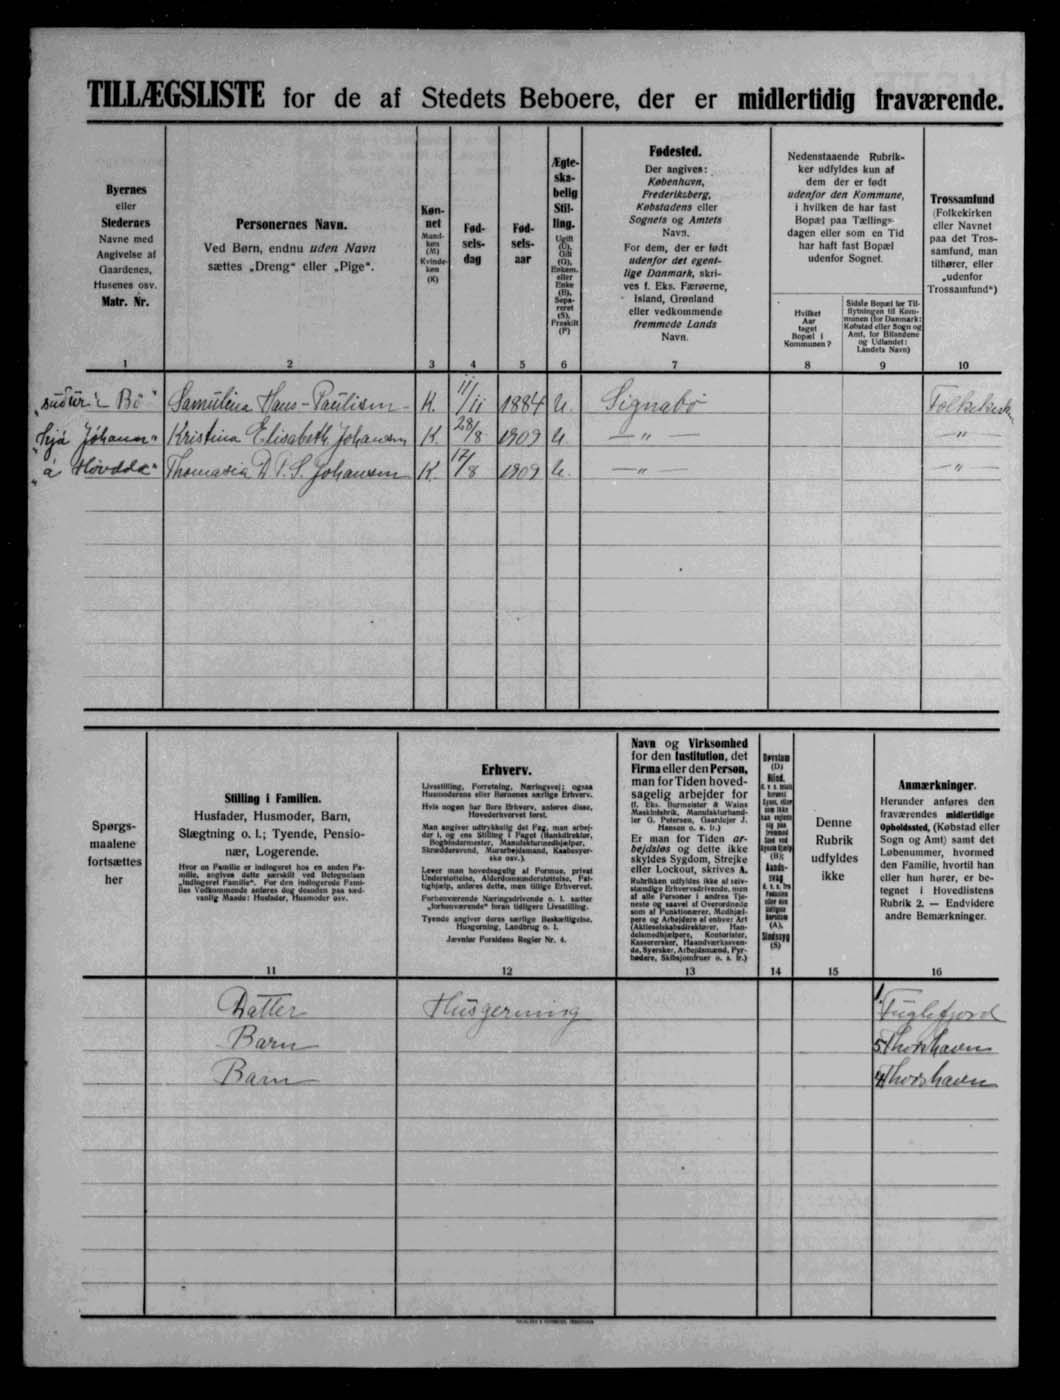 TILLÆGSLISTE for de af Stedets Beboere, der er midlertidig fraværende.
Byernes
eller
Stedernes
Navne med
Angivelse af
Gaardenes,
Husenes osv.
Matr. Nr.
1
Personernes Navn.
Ved Børn, endnu uden Navn
sættes „Dreng“ eller „Pige“.
2
Køn-
net
Mand-
køn
(M)
Kvinde-
køn
(K)
3
Fød-
sels-
dag
4
Fød-
sels-
aar
5
Ægte-
ska-
belig
Stil-
ling.
Ugift
(U),
Gift
(G),
Enkem.
eller
Enke
(E),
Sepa-
reret
(S),
Fraskilt
(F)
6
Fødested.
Der angives:
København,
Frederiksberg,
Købstadens eller
Sognets og Amtets
Navn.
For dem, der er født
udenfor det egent-
lige Danmark, skri-
ves f. Eks. Færøerne,
Island, Grønland
eller vedkommende
fremmede Lands
Navn.
7
Nedenstaaende Rubrik-
ker udfyldes kun af
dem der er født
udenfor den Kommune,
i hvilken de har fast
Bopæl paa Tællings-
dagen eller som en Tid
har haft fast Bopæl
udenfor Sognet.
Hvilket
Aar
taget
Bopæl i
Kommunen?
8
Sidste Bopæl før Til-
flytningen til Kom-
munen (for Danmark:
Købstad eller Sogn og
Amt, for Bilandene
og Udlandet:
Landets Navn)
9
Trossamfund
(Folkekirken
eller Navnet
paa det Tros-
samfund, man
tilhører, eller
„udenfor
Trossamfund“)
10
„suður í Bø“ Samulina Hans-Paulisen K. 11/11 1884 U. Signabø Folkekirk
„hjá Jóhann“ Kristina Elisabeth Johansen K. 28/8 1909 U. — „ — — „ —
„á Høvdda“ Thomasia D. P. S. Johansen K. 17/8 1909 U. — „ — — „ —
Spørgs-
maalene
fortsættes
her
Stilling i Familien.
Husfader, Husmoder, Barn,
Slægtning o. l.; Tyende, Pensio-
nær, Logerende.
Hvor en Familie er indlogeret hos en anden Fa-
milie, angives dette særskilt ved Betegnelsen
„indlogeret Familie“. For den indlogerede Fami-
lies Vedkommende anføres dog desuden paa sæd-
vanlig Maade: Husfader, Husmoder osv.
11
Erhverv.
Livsstilling, Forretning, Næringsvej; ogsaa
Husmoderens eller Børnenes særlige Erhverv.
Hvis nogen har flere Erhverv, anføres disse,
Hovederhvervet først.
Man angiver udtrykkelig det Fag, man arbej-
der i, og ens Stilling i Faget (Bankdirektør,
Bogbindermester, Manufakturmedhjælper,
Skræddersvend, Murarbejdsmand, Kaabesyer-
ske osv.).
Lever man hovedsagelig af Formue, privat
Understøttelse, Alderdomsunderstøttelse, Fat-
tighjælp, anføres dette, men tillige Erhvervet.
Forhenværende Næringsdrivende o. l. sætter
„forhenværende“ foran tidligere Livsstilling.
Tyende angiver deres særlige Beskæftigelse,
Husgerning, Landbrug o. l.
Jævnfør Forsidens Regler Nr. 4.
12
Navn og Virksomhed
for den Institution, det
Firma eller den Person,
man for Tiden hoved-
sagelig arbejder for
(f. Eks. Burmeister & Wains
Maskinfabrik, Manufakturhand-
ler G. Petersen, Gaardejer J.
Hansen o. s. fr.)
Er man for Tiden ar-
bejdsløs og dette ikke
skyldes Sygdom, Strejke
eller Lockout, skrives A.
Rubrikken udfyldes ikke af selv-
stændige Erhvervsdrivende, men
af alle Personer i andres Tje-
neste og saavel af Overordnede
som af Funktionærer, Medhjæl-
pere og Arbejdere af enhver Art
(Aktieselskabsdirektører, Han-
delsmedhjælpere, Kontorister,
Kasserersker, Haandværkssven-
de, Syersker, Arbejdsmænd, Pyr-
bødere, Skibsjomfruer o. s. fr.)
13
Døvstum
(D)
Blind,
(B);
Aands-
svag
(A),
Sindssyg
(S)
14
Denne
Rubrik
udfyldes
ikke
15
Anmærkninger.
Herunder anføres den
fraværendes midlertidige
Opholdssted, (Købstad eller
Sogn og Amt) samt det
Løbenummer, hvormed
den Familie, hvortil han
eller hun hører, er be-
tegnet i Hovedlistens
Rubrik 2. — Endvidere
andre Bemærkninger.
16
Datter Husgerning 1. Fuglefjord
Barn 5 Thorshavn
Barn 4 Thorshavn